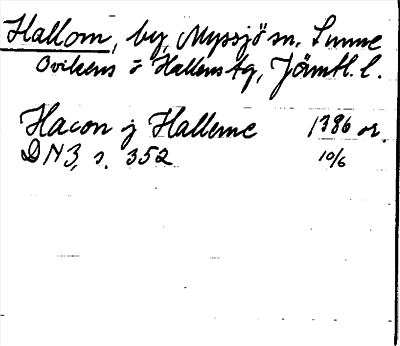 Hallom, by, Myssjö sn. Sunne
Ovikens o Hallens tg, Jämtl. l.
Hacon j Halleme 1386 or.
DN 3, s. 352 10/6